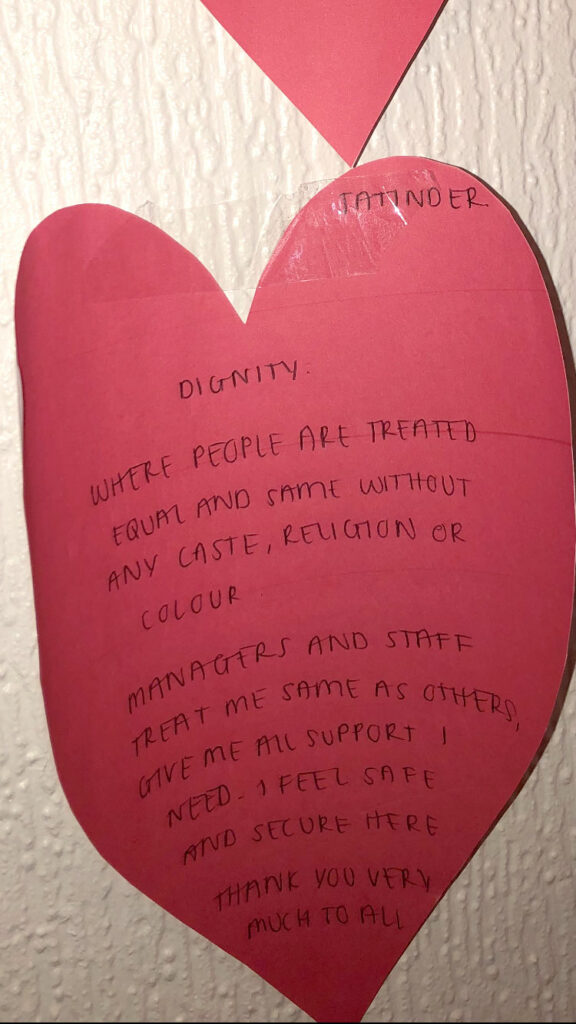 JATINDER.
DIGNITY.
WHERE PEOPLE ARE TREATED
EQUAL AND SAME WITHOUT
ANY CASTE, RELIGION OR
COLOUR
MANAGERS AND STAFF
TREAT ME SAME AS OTHERS,
GIVE ME ALL SUPPORT I
NEED. I FEEL SAFE
AND SECURE HERE
THANK YOU VERY
MUCH TO ALL